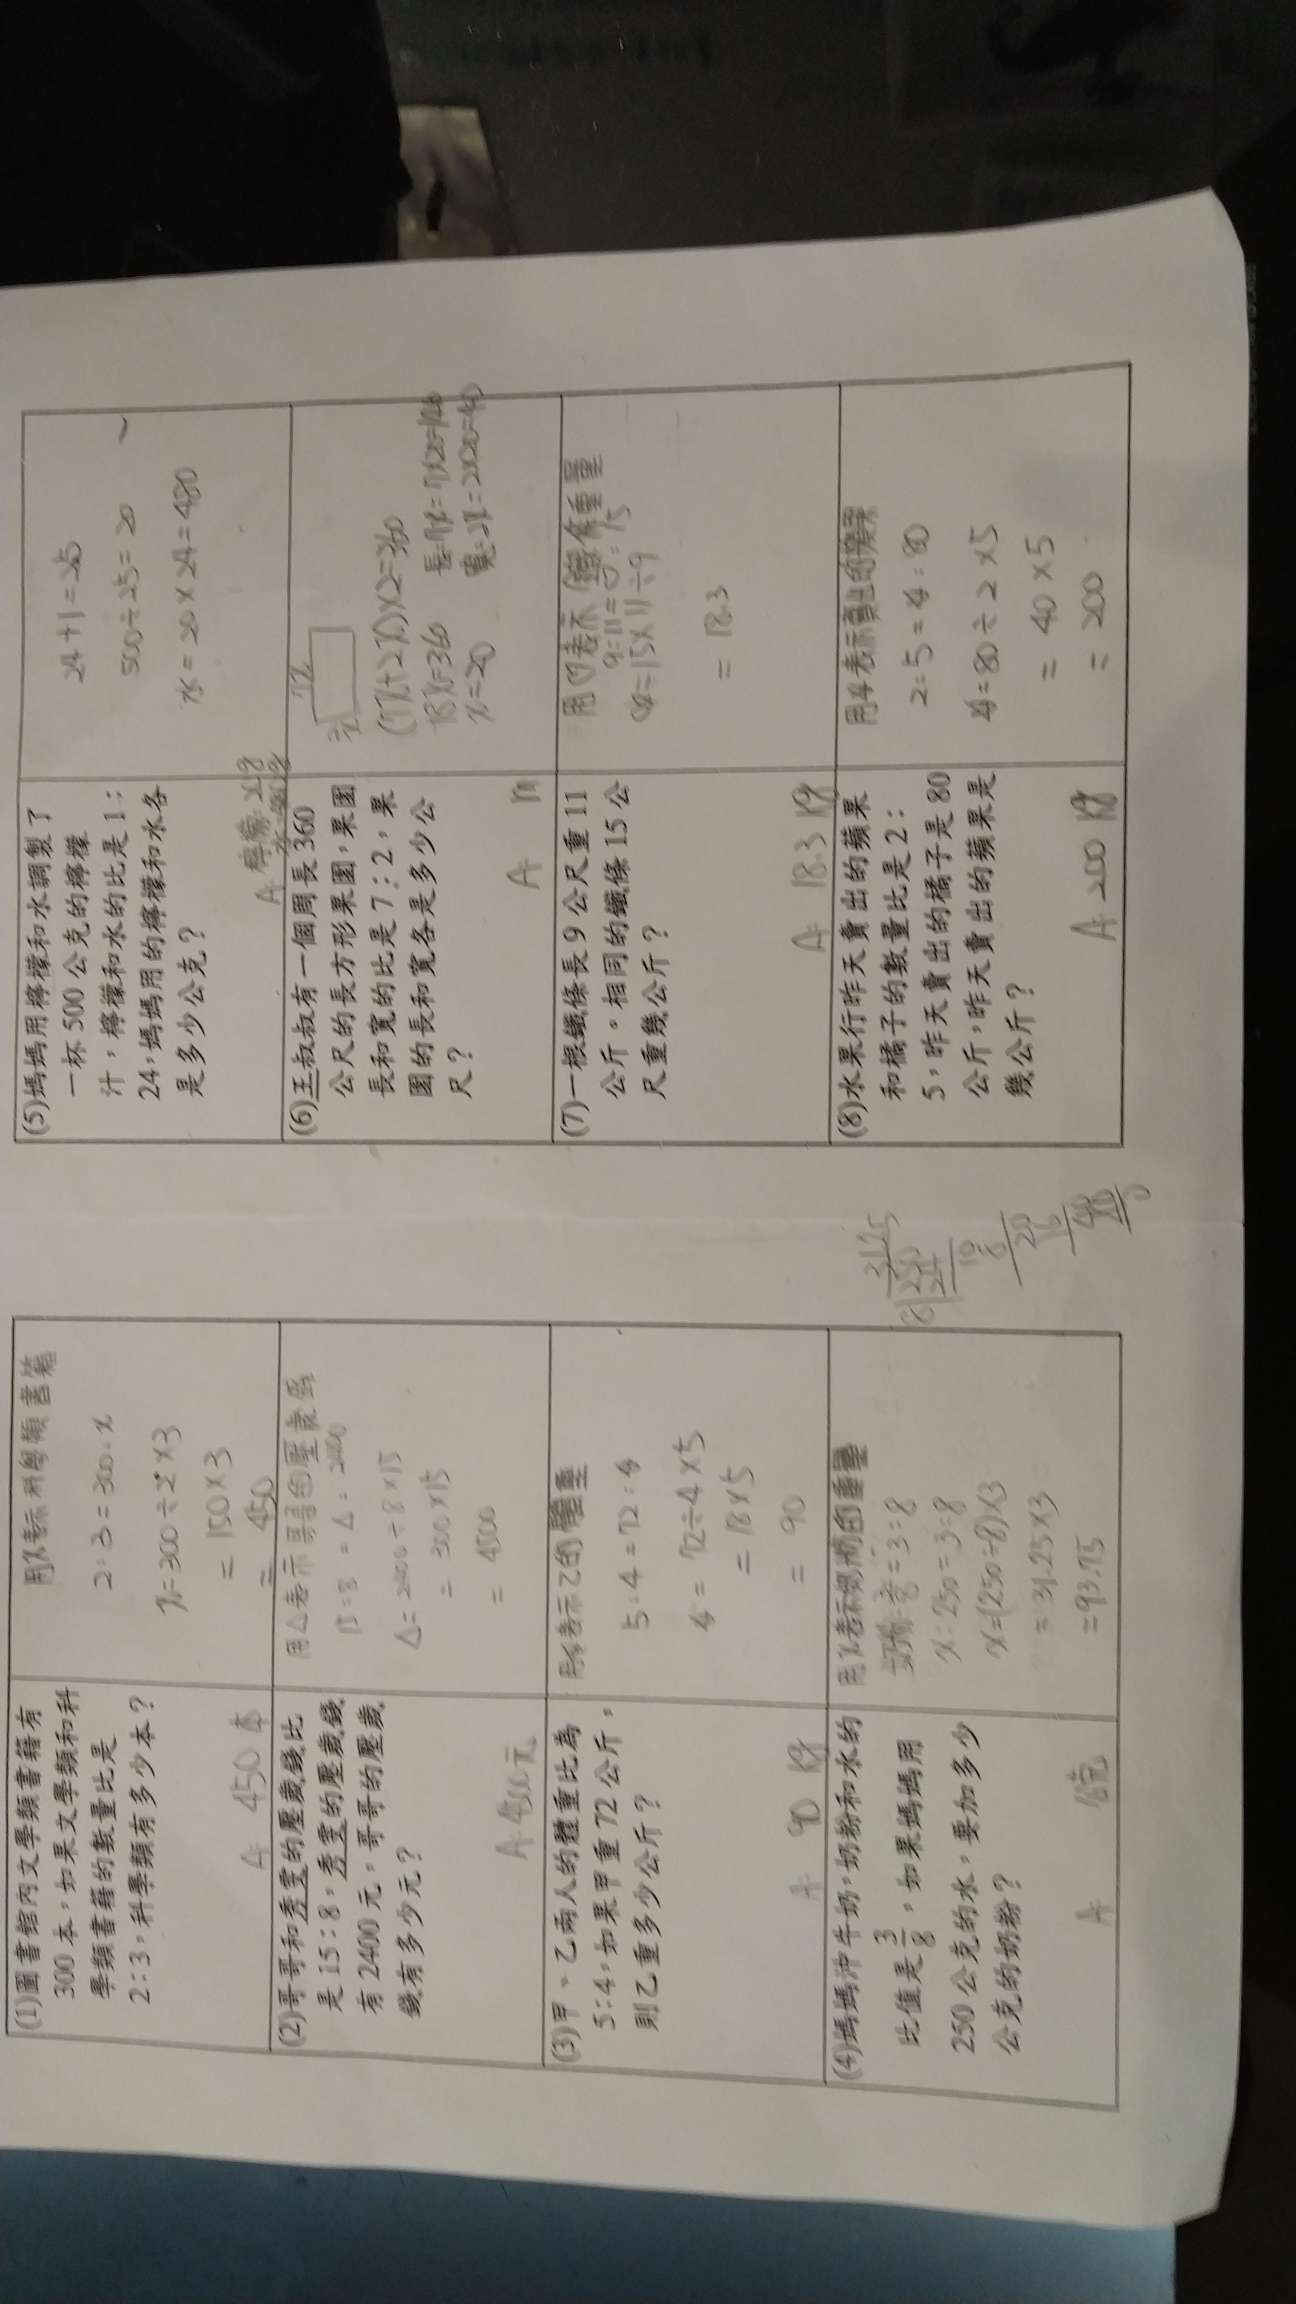 (1)圖書館內文學類書籍有
300本，如果文學類和科
學類書籍的數量比是
2：3，科學類有多少本？
A: 450 本
用x表示科學類書籍
2:3=300:x
x=300÷2×3
=150×3
=450
(2)哥哥和秀雯的壓歲錢比
是15：8，秀雯的壓歲錢
有2400元，哥哥的壓歲
錢有多少元？
A: 4500元
用△表示哥哥的壓歲錢
15:8=△:2400
△=2400÷8×15
=300×15
=4500
(3)甲、乙兩人的體重比為
5：4，如果甲重72公斤，
則乙重多少公斤？
A: 90 kg
表示乙的體重
5:4=72:
=72÷4×5
=18×5
=90
(4)媽媽沖牛奶，奶粉和水的
比值是3/8，如果媽媽用
250公克的水，要加多少
公克的奶粉？
A: 公克
用x表示奶粉的重量
=3:8
x:250=3:8
x=(250÷8)×3
=31.25×3
=93.75
31.25
8 250
24
10
8
20
16
40
40
0
(5)媽媽用檸檬和水調製了
一杯500公克的檸檬
汁，檸檬和水的比是1：
24，媽媽用的檸檬和水各
是多少公克？
A: 檸檬:20g
水:480g
24+1=25
500÷25=20
水=20×24=480
(6)王叔叔有一個周長360
公尺的長方形果園，果園
長和寬的比是7：2，果
園的長和寬各是多少公
尺？
A: m
7x
2x
(7x+2x)×2=360
18x=360
x=20
長:7x=7×20=140
寬:2x=2×20=40
(7)一根鐵條長9公尺重11
公斤。相同的鐵條15公
尺重幾公斤？
A: 18.3 kg
用♡表示鐵條重量
9:11=♡:15
=15×11÷9
=18.3
(8)水果行昨天賣出的蘋果
和橘子的數量比是2：
5，昨天賣出的橘子是80
公斤，昨天賣出的蘋果是
幾公斤？
A: 200 kg
表示賣出的蘋果
2:5= :80
=80÷2×5
=40×5
=200